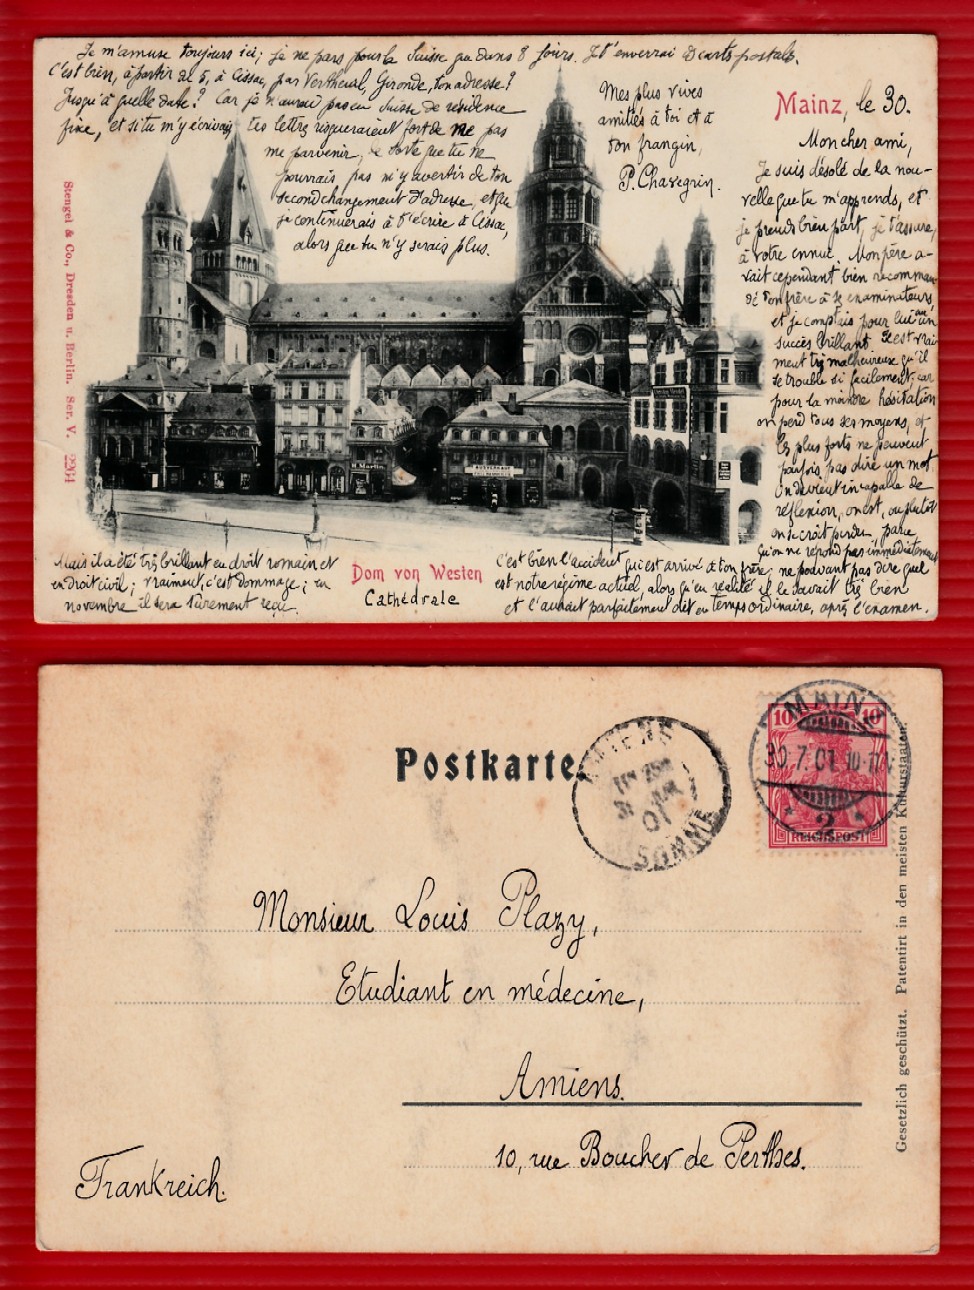 Mainz, le 30.
Mon cher ami,
Je suis désolé de la nou-
velle que tu m'apprends, et
je prends bien part, je t'assure,
à votre ennui. Mon père a-
vait cependant bien recomman
dé ton frère à ses examinateurs,
et je comptais pour lui au un
succès brillant. Il est vrai
ment très malheureux qu'il
se trouble si facilement; car
pour la moindre hésitation
on perd tous ses moyens, et
les plus forts ne peuvent
parfois pas dire un mot.
On devient incapable de
réflexion, on est, ou plutôt
on se croit perdu, parce
qu'on ne répond pas immédiatement
c'est bien l'accident qui est arrivé à ton frère; ne pouvant pas dire quel
est notre régime actuel, alors qu'en réalité il le savait très bien
et l'aurait parfaitement dit en temps ordinaire, après l'examen.
Mais il a été très brillant en droit romain et
en droit civil; vraiment, c'est dommage; en
novembre il sera sûrement reçu.
Je m'amuse toujours ici; je ne pars pour la Suisse que dans 8 jours. Je t'enverrai des cartes postales.
C'est bien, à partir du 5, à Cissac, par Vertheuil, Gironde, ton adresse?
Jusqu'à quelle date? Car je n'aurai pas en Suisse de résidence
fixe, et si tu m'y écrivais tes lettres risqueraient fort de me pas
me parvenir, de sorte que tu ne
pourrais pas m'y avertir de ton
second changement d'adresse, et que
je continuerais à t'écrire à Cissac,
alors que tu n'y serais plus.
Mes plus vives
amitiés à toi et à
ton frangin,
P. Chavegrin.
Dom von Westen
Cathédrale
Stengel & Co., Dresden u. Berlin. Ser. V. 2264
H. Martin
Postkarte
AMIENS
SOMME
01
MAINZ
30.7.01. 10-11V.
* 2 *
10 10
REICHSPOST
Monsieur Louis Plazy,
Etudiant en médecine,
Amiens.
10, rue Boucher de Perthes.
Frankreich.
Gesetzlich geschützt. Patentirt in den meisten Kulturstaaten.